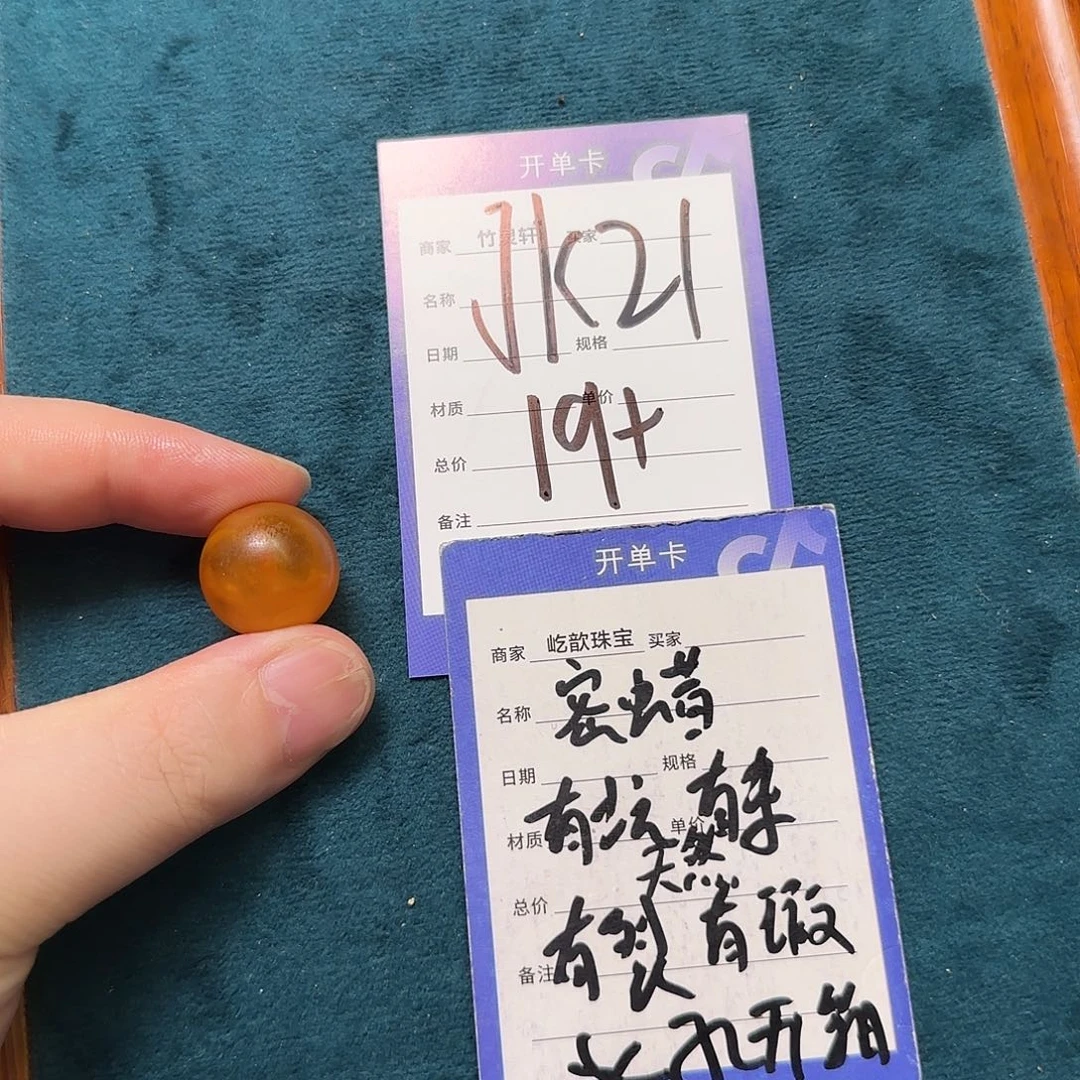 开单卡
JK21
商家 竹灵轩 买家
名称
日期 规格
19+
材质 单价
总价
备注
开单卡
商家 屹歆珠宝 买家
蜜蜡
名称
日期 规格
有坑 有杂
材质 单价
天然
总价
有裂 有瑕
备注